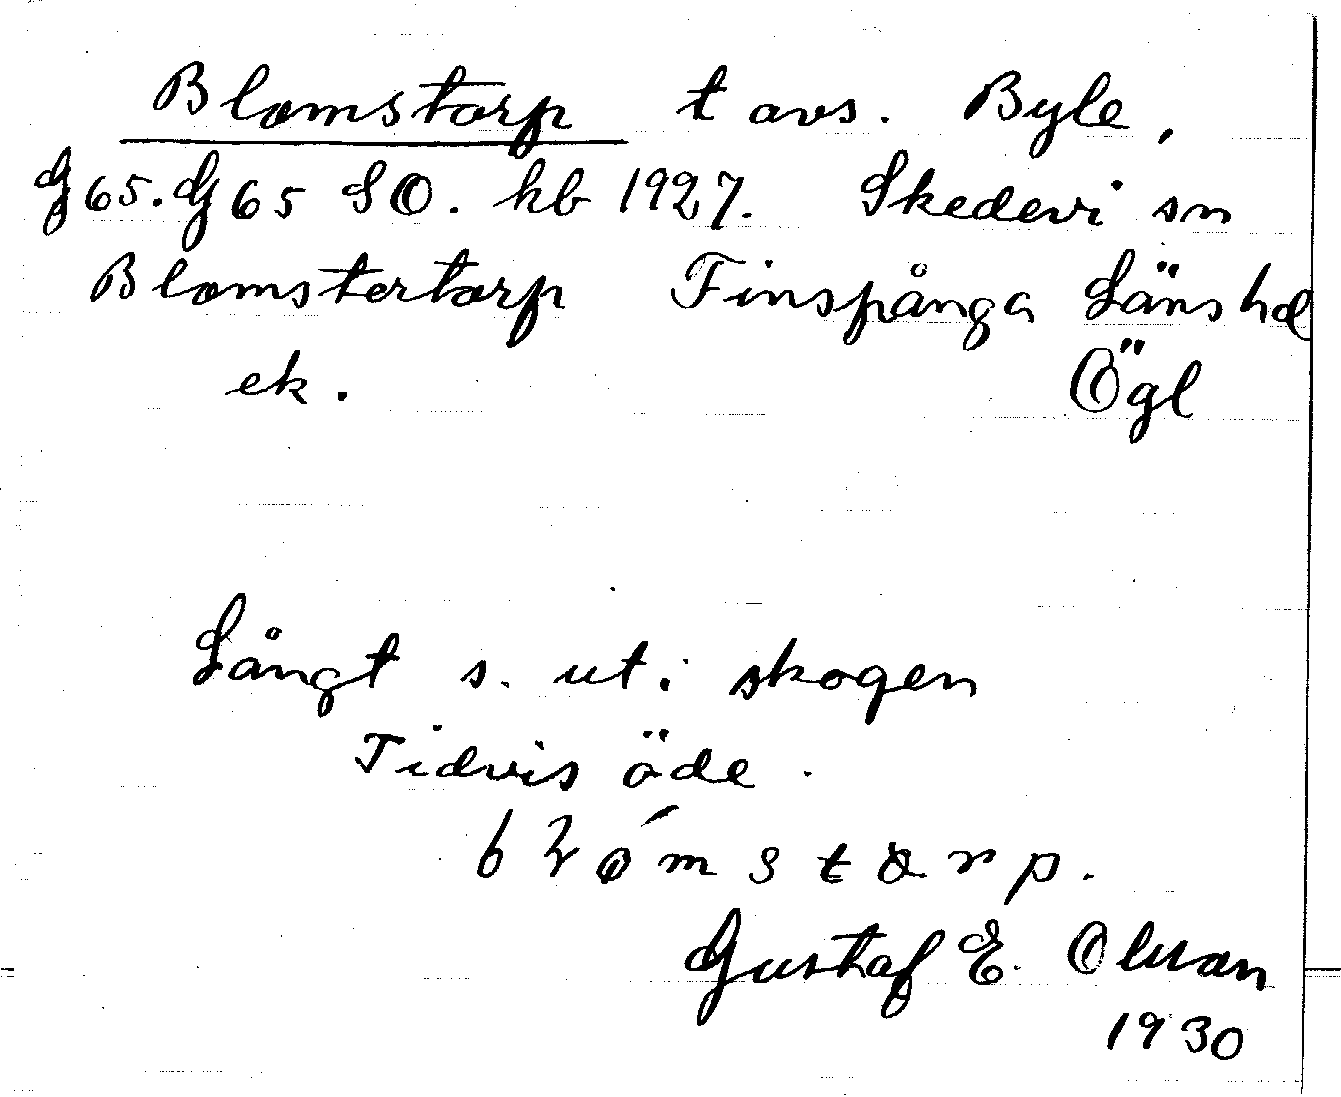 Blomstorp t avs. Byle,
G65. G65 SO. kb 1927. Skedevi sn
Blomstertorp Finspånga Läns hd
ek. Ögl
Långt s. ut i skogen
Tidvis öde.
storp.
Gustaf E. Olsson
1930